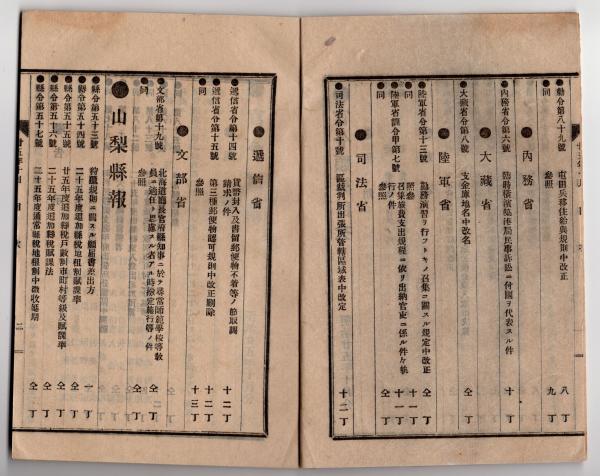 ●勅令第八十九號 屯田兵移住給與規則中改正 八丁
同 參照 九丁
●內務省
●內務省令第六號 臨時橫濱築港局民事訴訟ニ付國ヲ代表スル件 十丁
●大藏省
●大藏省令第八號 支金庫地名中改名 仝丁
●陸軍省
●陸軍省令第十三號 勤務演習ヲ行フトキノ召集ニ關スル規定中改正 仝丁
同 參照 十一丁
●陸軍省訓令甲第七號 召集旅費支出規程ニ依リ出納官吏ニ係ル件ヶ執行ノ件 十一丁
同 參照 仝丁
●司法省
●司法省令第十號 區裁判所出張所管轄區域表中改定 十二丁
●遞信省
●遞信省令第十四號 貨幣封入及書留郵便物不着等ノ節取調請求ノ件 十二丁
●遞信省令第十五號 第三種郵便物認可規則中改正刪除 十二丁
同 參照 十三丁
●文部省
●文部省令第十九號 北海道廳長官府縣知事ニ於テ尋常師範學校等敎員ニ適任ト思慮スル者アル時檢定施行等ノ件 仝丁
同 參照 仝丁
●山梨縣報
●縣令第五十三號 狩獵規則ニ關スル願屆書差出方 一丁
●縣令第五十四號 二十五年度追加縣稅地租割賦課率 仝丁
●縣令第五十五號 廿五年度追加縣稅戶數割市町村等級及賦課率 仝丁
●縣令第五十六號 二十五年度追加縣稅賦課法 仝丁
●縣令第五十七號 二十五年度通常縣稅地租割中徵收延期 仝丁
目次 二